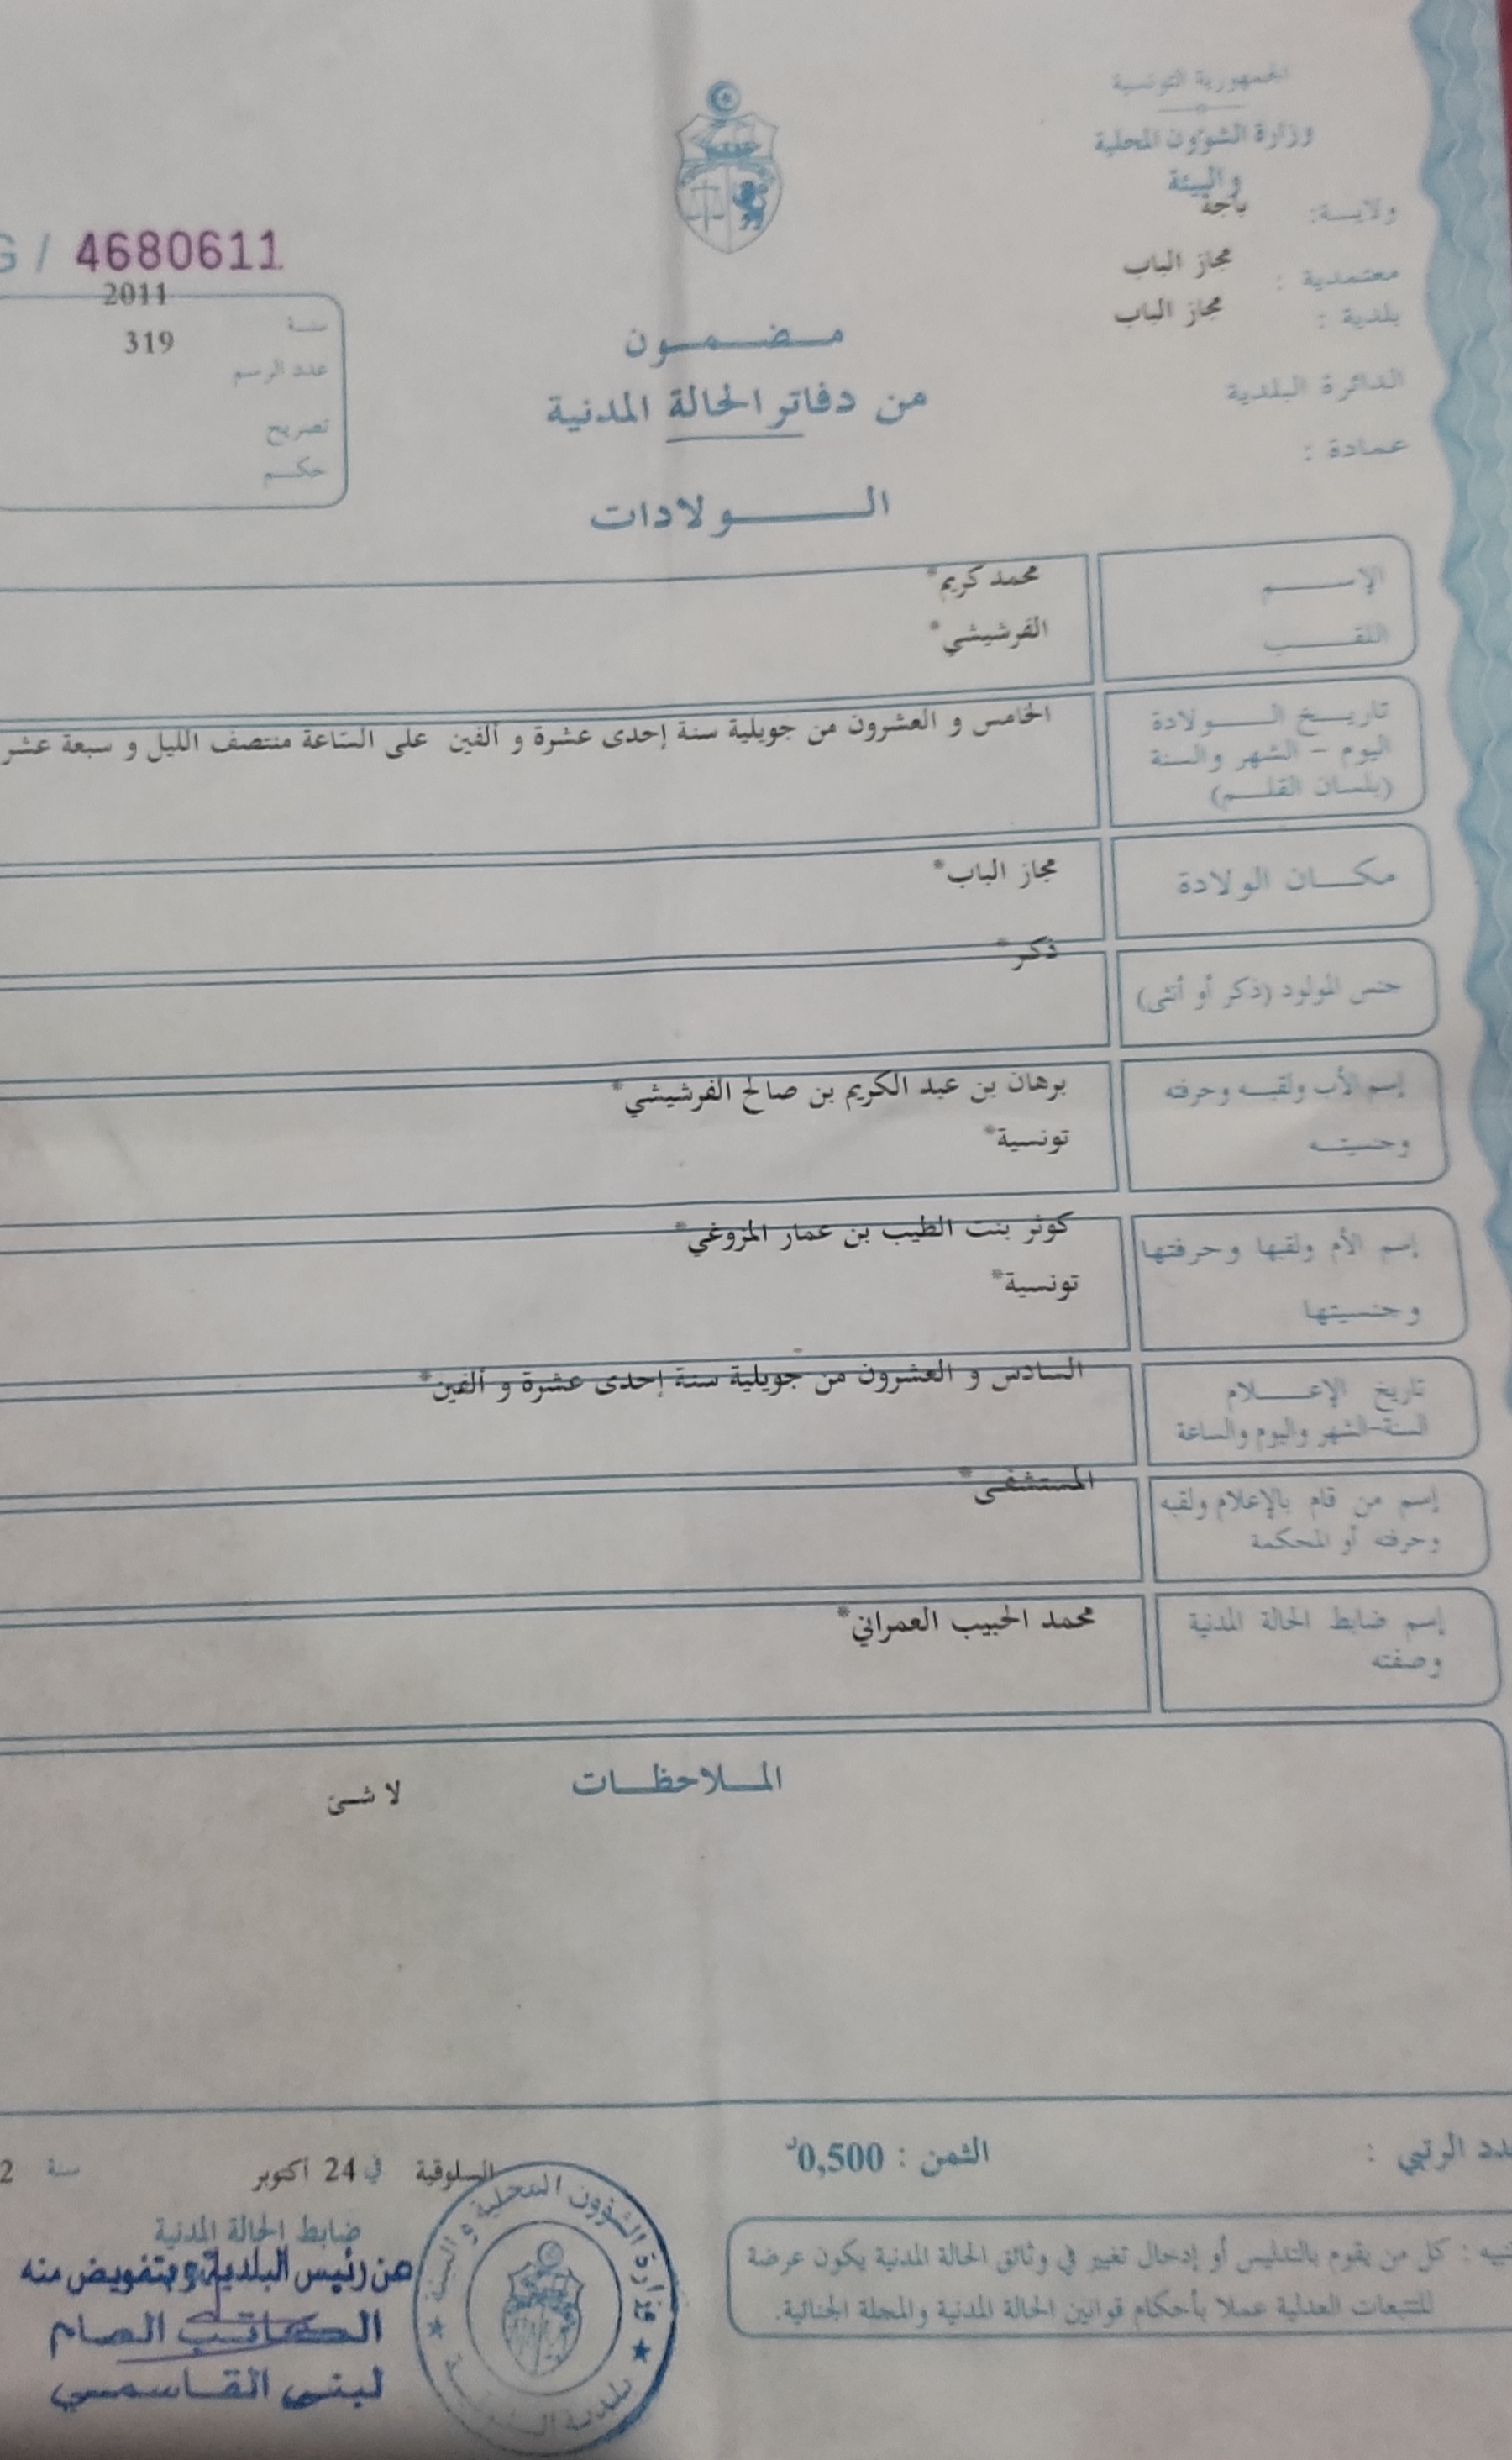 الجمهورية التونسية
وزارة الشؤون المحلية
والبيئة
ولايــة: باجة
معتمدية : مجاز الباب
بلدية : مجاز الباب
الدائرة البلدية
عمادة :
G / 4680611
سنة 2011
عدد الرسم 319
تصريح
حكم
مضمون
من دفاتر الحالة المدنية
الولادات
الإسم محمد كريم*
اللقب الفرشيشي*
تاريخ الولادة الخامس و العشرون من جويلية سنة إحدى عشرة و ألفين على الساعة منتصف الليل و سبعة عشر
اليوم - الشهر والسنة
(بلسان القلم)
مكان الولادة مجاز الباب*
جنس المولود (ذكر أو أنثى) ذكر*
إسم الأب ولقبه وحرفته برهان بن عبد الكريم بن صالح الفرشيشي*
وجنسيته تونسية*
إسم الأم ولقبها وحرفتها كوثر بنت الطيب بن عمار المزوغي*
وجنسيتها تونسية*
تاريخ الإعلام السادس و العشرون من جويلية سنة إحدى عشرة و ألفين*
السنة-الشهر واليوم والساعة
إسم من قام بالإعلام ولقبه المستشفى*
وحرفته أو المحكمة
إسم ضابط الحالة المدنية محمد الحبيب العمراني*
وصفته
الملاحظات لا شئ
الرتبي :
الثمن : 0,500د
السلوقية في 24 أكتوبر سنة 2
ضابط الحالة المدنية
عن رئيس البلدية وبتفويض منه
الكاتب العام
لبنى القاسمي
وزارة الشؤون المحلية و البيئة
بلدية
كل من يقوم بالتدليس أو إدخال تغيير في وثائق الحالة المدنية يكون عرضة
للتتبعات العدلية عملا بأحكام قوانين الحالة المدنية والمجلة الجنائية.